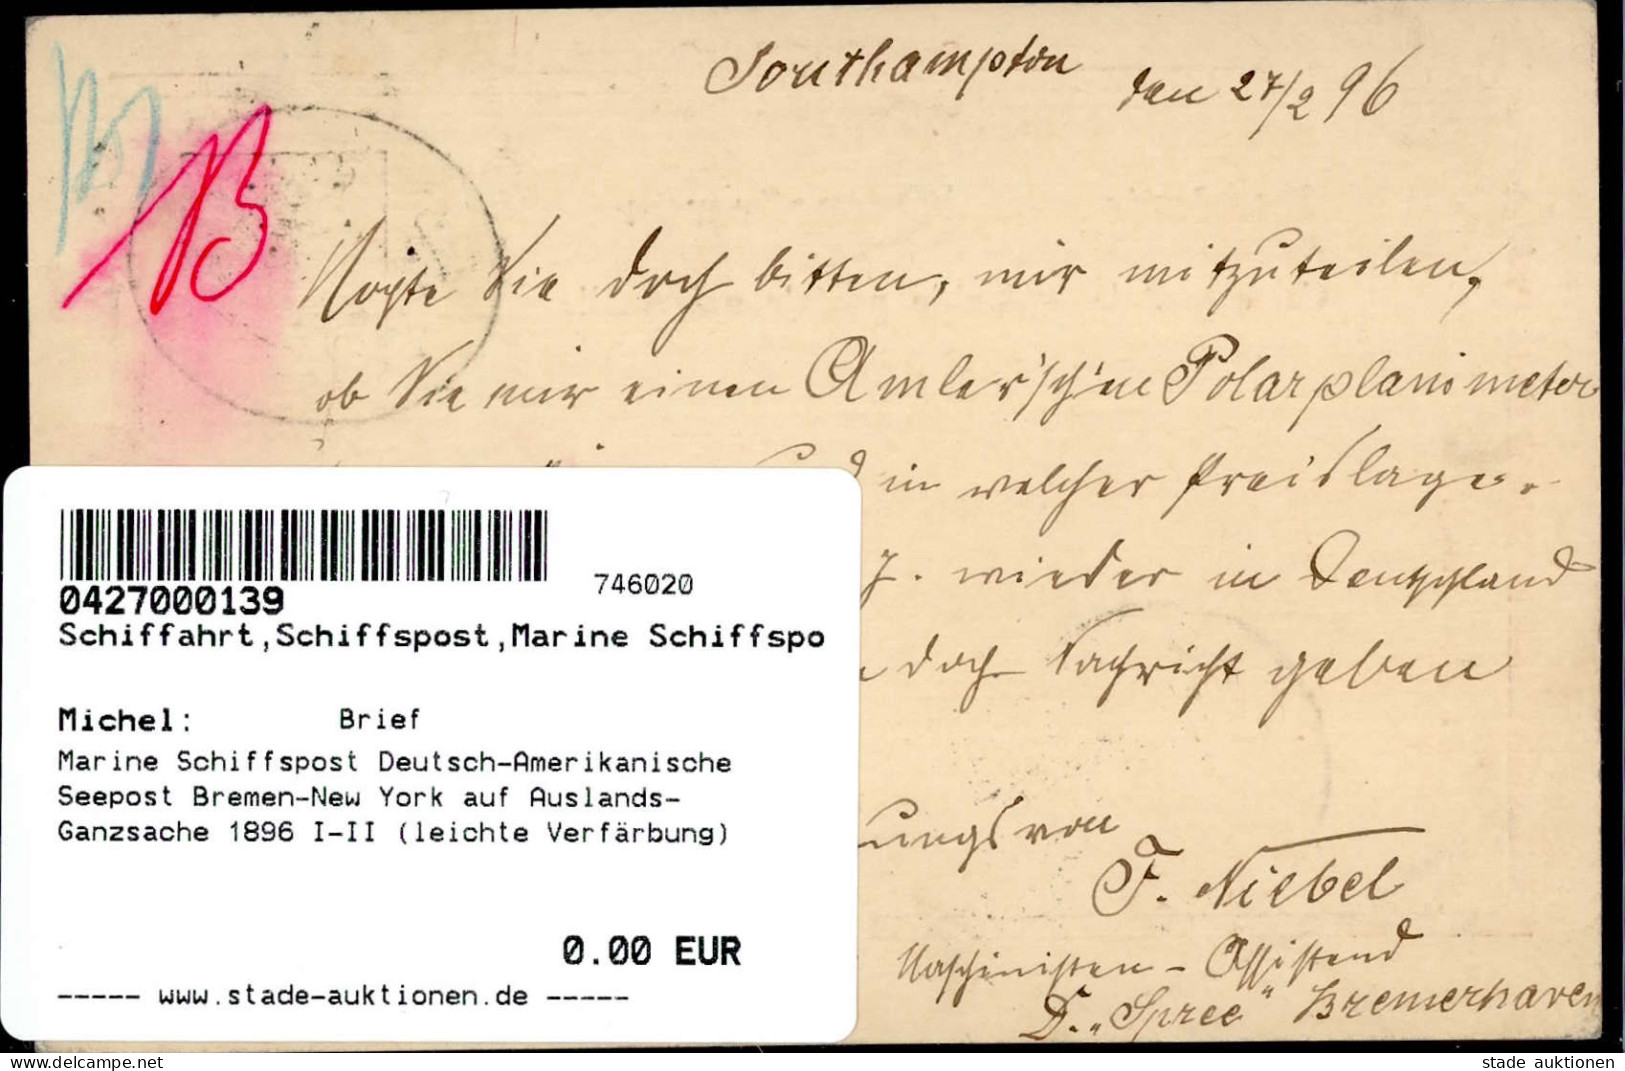 Southampton den 27/2 96
Mögte Sie doch bitten, mir mitzuteilen,
ob Sie mir einen Amler'sch'en Polarplanimeter
in welcher Preislage.
wieder in Deutschland
doch Nachricht geben
ungsvon
F. Niebel
Maschinisten - Assistend
D. „Spree" Bremerhaven
746020
0427000139
Schiffahrt,Schiffspost,Marine Schiffspo
Michel: Brief
Marine Schiffspost Deutsch-Amerikanische
Seepost Bremen-New York auf Auslands-
Ganzsache 1896 I-II (leichte Verfärbung)
0.00 EUR
----- www.stade-auktionen.de -----
stade auktionen